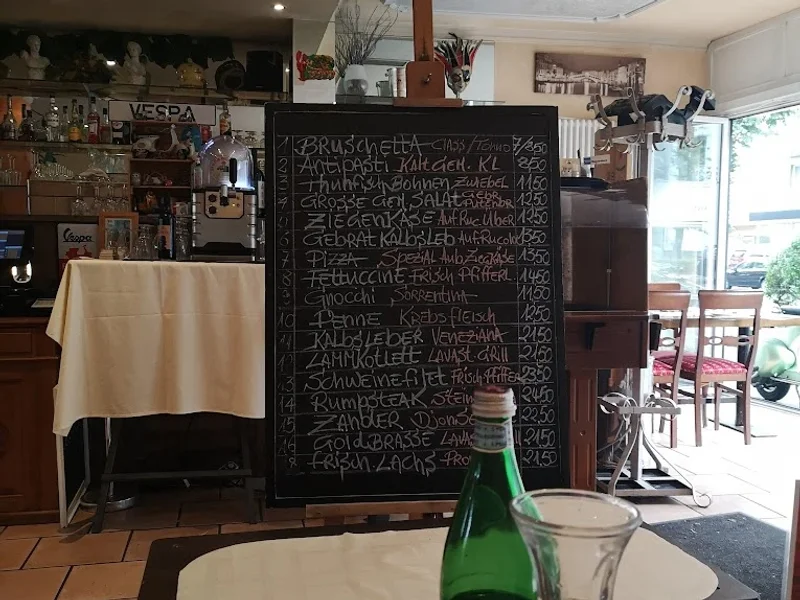 VESPA
Vespa
1 BRUSCHETTA CLASS/TONNO 7/850
2 Antipasti KALT Gem. KL 850
3 Thunfisch Bohnen Zwiebel 1150
4 GROSSE Gem SALAT 1250
5 ZIEGENKÄSE Auf Ruc. Über 1250
6 GEBRAT KALBSLEB Auf Rucola 1350
7 PIZZA SPEZIAL Aub Ziegkäse 1350
8 Fettuccine Frisch Pfifferl 1450
9 Gnocchi SORRENTINA 1150
10 Penne KREBSFLEISCH 1250
11 KALBSLEBER VENEZIANA 2150
12 LAMMKOTLETT LAVAST GRILL 2150
13 Schweinefilet Frisch Pfiffer 2350
14 Rumpsteak Stein 2450
15 ZANDER Dijon 2250
16 GOLDBRASSE LAVA 2150
Frisch LACHS Pro 2150